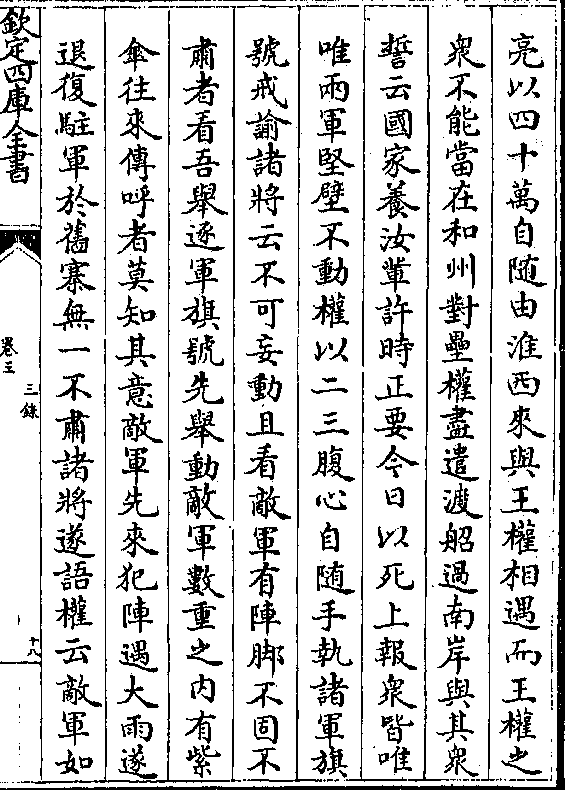 亮以四十萬自随由淮西來與王權相遇而王權之
衆不能當在和州對壘權盡遣渡船過南岸與其衆
誓云國家養汝輩許時正要今日以死上報衆皆唯
唯兩軍堅壁不動權以二三腹心自随手執諸軍旗
號戒諭諸將云不可妄動且看敵軍有陣脚不固不
肅者看吾舉逐軍旗號先舉動敵軍數重之内有紫
傘往來傳呼者莫知其意敵軍先來犯陣遇大雨遂
退復駐軍於舊寨無一不肅諸將遂語權云敵軍如
欽定四庫全書
卷三
三錄
十八